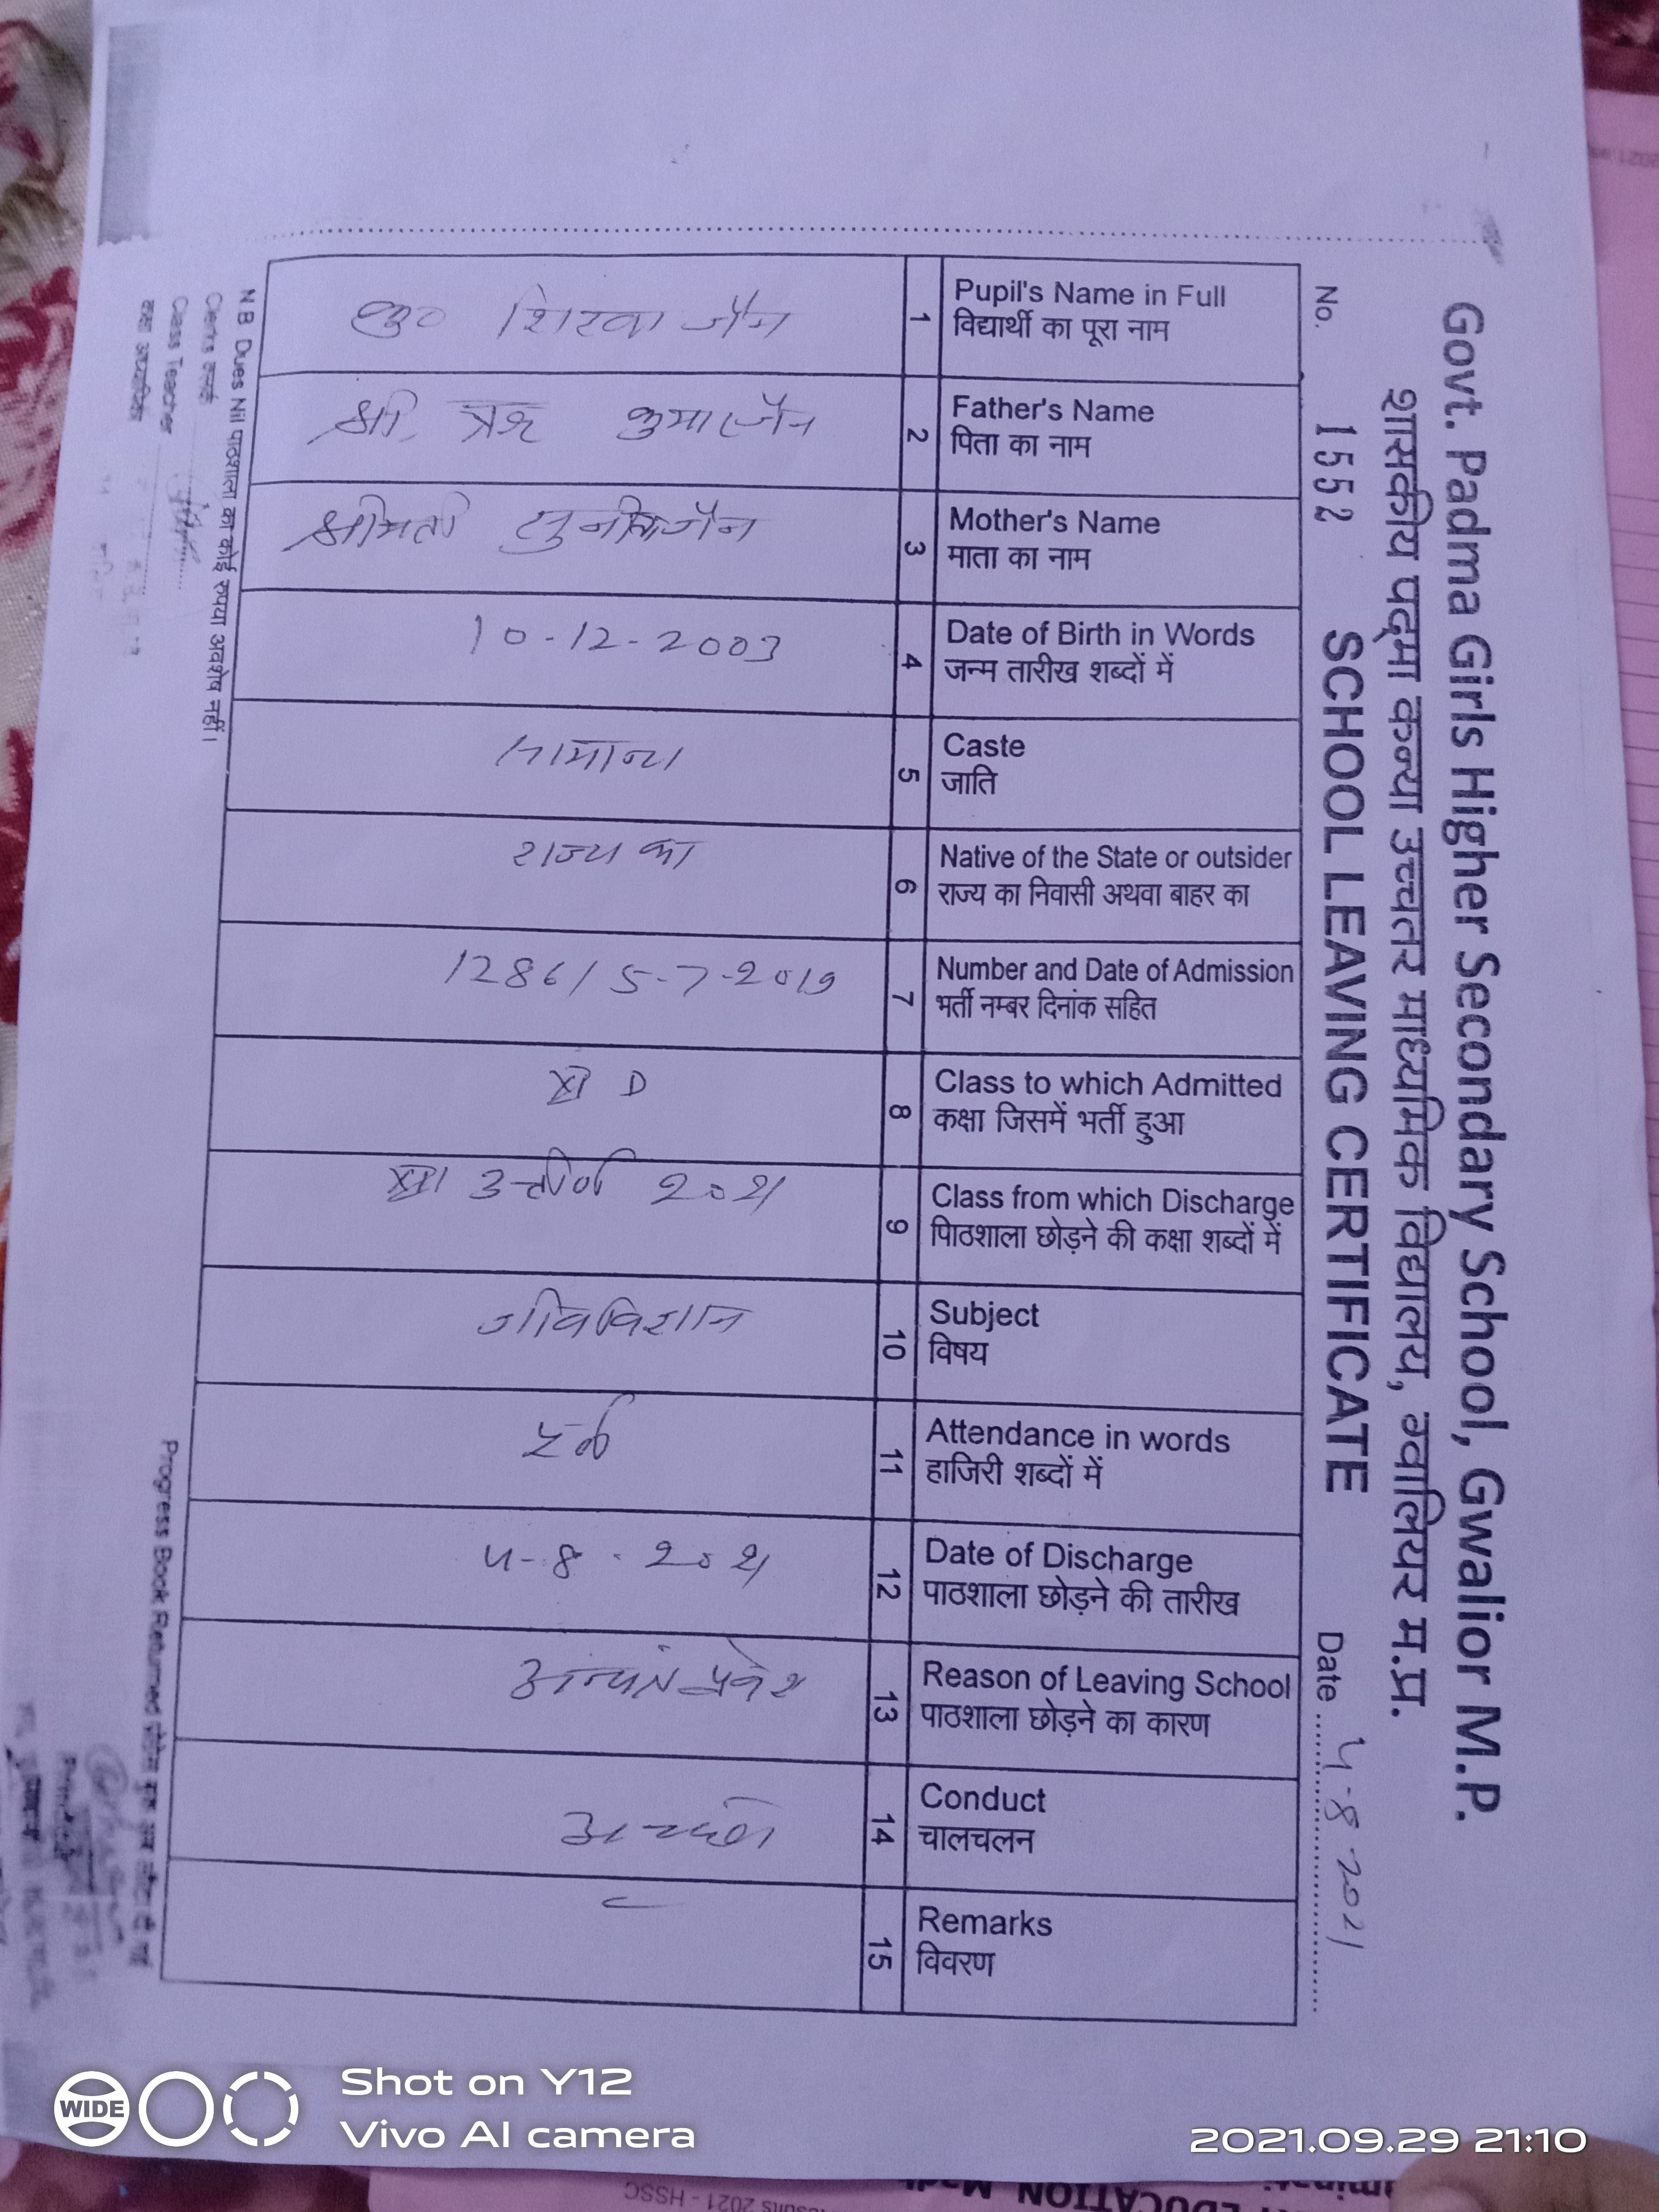 Govt. Padma Girls Higher Secondary School, Gwalior M.P.
शासकीय पद्मा कन्या उच्चतर माध्यमिक विद्यालय, ग्वालियर म.प्र.
No. 1552 SCHOOL LEAVING CERTIFICATE Date 4-8-2021
Pupil's Name in Full
विद्यार्थी का पूरा नाम
1
कु० शिखा जैन
Father's Name
पिता का नाम
2
श्री कुमार जैन
Mother's Name
माता का नाम
3
श्रीमती जैन
Date of Birth in Words
जन्म तारीख शब्दों में
4
10-12-2003
Caste
जाति
5
सामान्य
Native of the State or outsider
राज्य का निवासी अथवा बाहर का
6
राज्य का
Number and Date of Admission
भर्ती नम्बर दिनांक सहित
7
1286/5-7-2019
Class to which Admitted
कक्षा जिसमें भर्ती हुआ
8
XI D
Class from which Discharge
पिाठशाला छोड़ने की कक्षा शब्दों में
9
XII उत्तीर्ण 2021
Subject
विषय
10
जीवविज्ञान
Attendance in words
हाजिरी शब्दों में
11
पूर्ण
Date of Discharge
पाठशाला छोड़ने की तारीख
12
4-8-2021
Reason of Leaving School
पाठशाला छोड़ने का कारण
13
अन्यत्र प्रवेश
Conduct
चालचलन
14
अच्छा
Remarks
विवरण
15
N.B. Dues Nil पाठशाला का कोई रुपया अवशेष नहीं।
Clerks क्लर्क
Class Teacher
कक्षा अध्यापिका
Progress Book Returned
WIDE
Shot on Y12
Vivo AI camera
2021.09.29 21:10